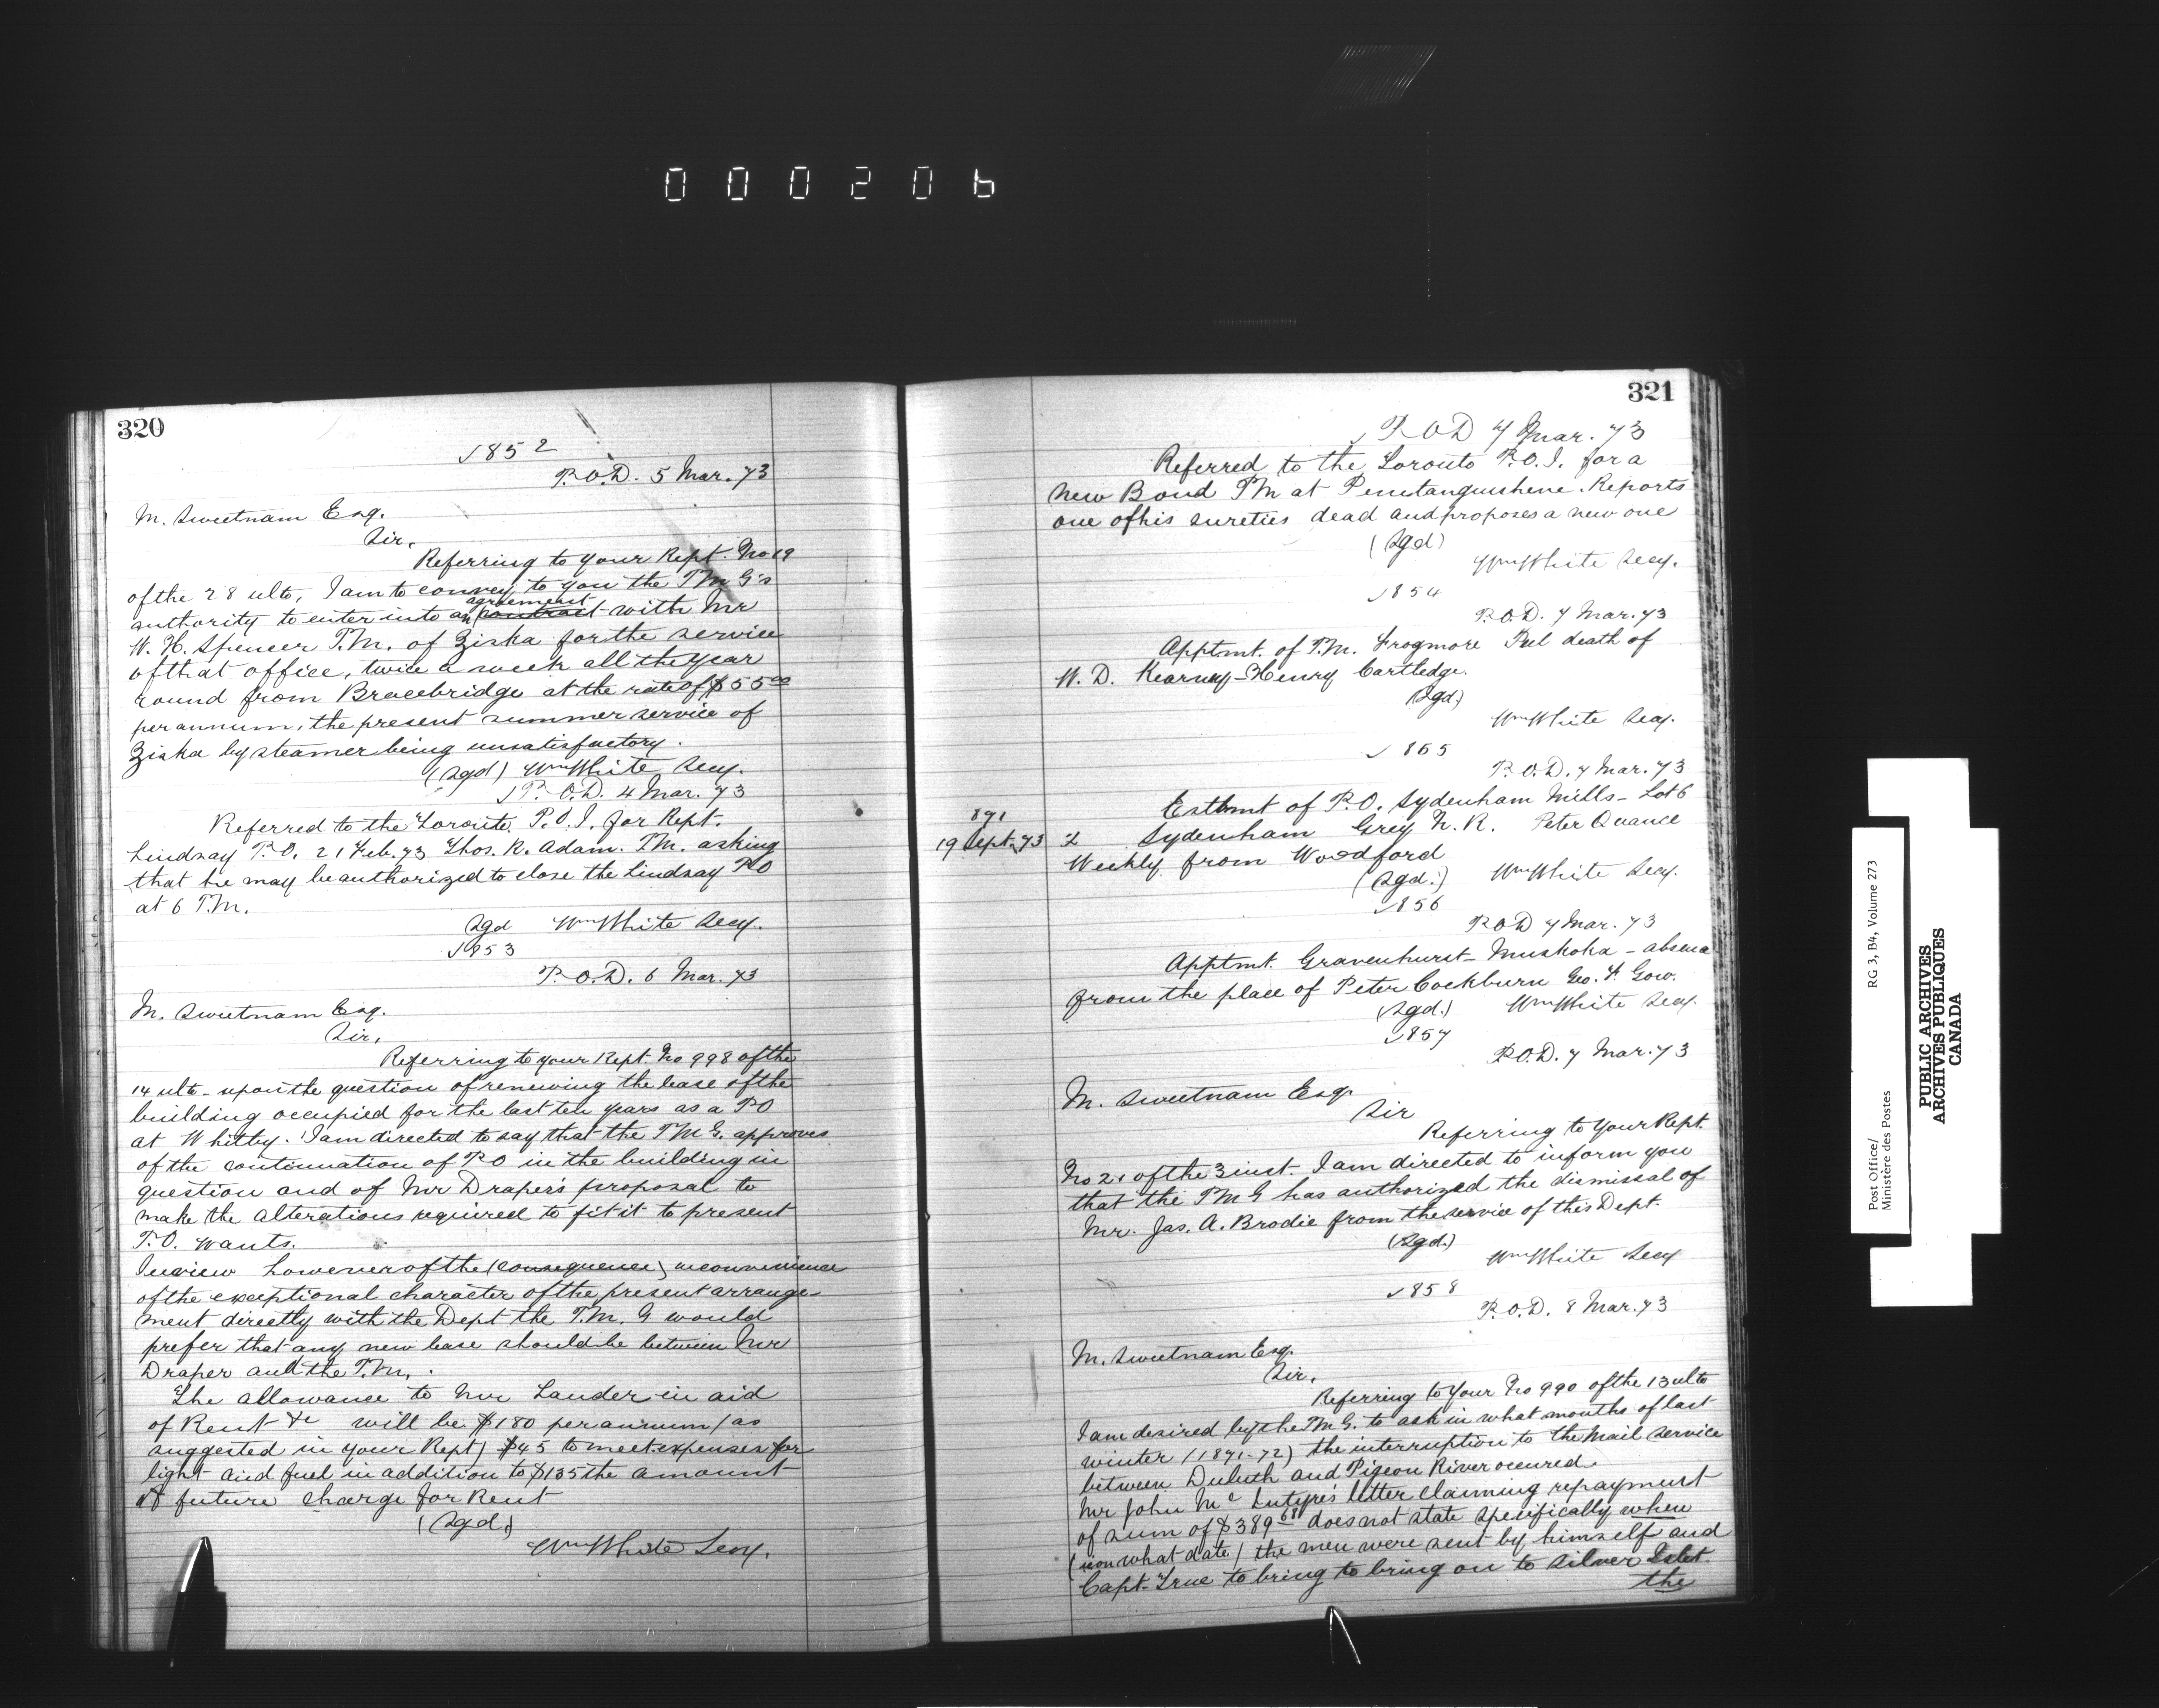 000206
320
√852
P.O.D. 5 Mar. 73
M. Sweetnam Esq.
Sir,
Referring to your Rept. No 19
of the 28 ulto, I am to convey to you the P.M.G's
agreement
authority to enter into an contract with Mr
W. H. Spencer P.M. of Ziska for the service
of that office, twice a week all the year
round from Bracebridge at the rate of $55 00
per annum, the present summer service of
Ziska by steamer being unsatisfactory.
(Sgd) Wm White Secy.
√P.O.D. 4 Mar. 73
Referred to the Toronto P.O.I. for Rept.
Lindsay P.O. 21 Feb. 73 Thos. R. Adam. P.M. asking
that he may be authorized to close the Lindsay PO
at 6 P.M.
Sgd Wm White Secy.
√853
P.O.D. 6 Mar. 73
M. Sweetnam Esq.
Sir,
Referring to your Rept. No 998 of the
14 ulto - upon the question of renewing the lease of the
building occupied for the last ten years as a PO
at Whitby. I am directed to say that the P.M.G. approves
of the continuation of PO in the building in
question and of Mr Draper's proposal to
make the alterations required to fit it to present
P.O. wants.
In view however of the (consequence) inconvenience
of the exceptional character of the present arrange
ment directly with the Dept the P.M.G would
prefer that any new lease should be between Mr
Draper and the P.M.
The allowance to Mr Lauder in aid
of Rent &c will be $180 per annum (as
suggested in your Rept) $45 to meet expenses for
light and fuel in addition to $135 the amount
of future charge for Rent
(Sgd.)
Wm White Secy.
321
√P.O.D 7 Mar. 73
Referred to the Toronto P.O.I. for a
new Bond PM at Penetanguishene. Reports
one of his sureties dead and proposes a new one
(Sgd)
Wm White Secy.
√854
P.O.D. 7 Mar. 73
Apptmt. of P.M. Frogmore Peel death of
W. D. Kearney - Henry Cartledge.
(Sgd)
Wm White Secy.
√865
P.O.D. 7 Mar. 73
Estbmt of P.O. Sydenham Mills - Lot 6
891
19 Sept. 73
2 Sydenham Grey N.R. Peter Quance
Weekly from Woodford
(Sgd.) Wm White Secy.
√856
P.O.D 7 Mar. 73
Apptmt. Gravenhurst - Muskoka - absence
from the place of Peter Cockburn Geo. F. Gow.
(Sgd.) Wm White Secy.
√857
P.O.D. 7 Mar. 73
M. Sweetnam Esq.
Sir
Referring to your Rept.
No 21 of the 3 inst. I am directed to inform you
that the PMG has authorized the dismissal of
Mr. Jas. A. Brodie from the service of this Dept.
(Sgd.)
Wm White Secy
√858
P.O.D. 8 Mar. 73
M. Sweetnam Esq.
Sir,
Referring to your No 990 of the 13 ulto
I am desired by the P.M.G. to ask in what months of last
winter (1871-72) the interruption to the Mail service
between Duluth and Pigeon River occured.
Mr John McIntyre's letter claiming repayment
of sum of $389 68 does not state specifically when
( on what date) the men were sent by himself and
Capt. True to bring to bring on to Silver Islet
the
Post Office/
Ministère des Postes
RG 3, B4, Volume 273
PUBLIC ARCHIVES
ARCHIVES PUBLIQUES
CANADA